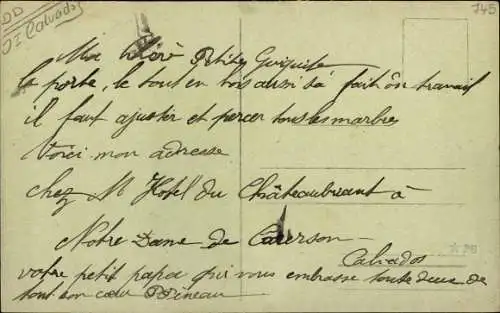 DD
OI Calvados
745
Ma chère Petite
la porte, le tout en bois aussi sa fait ôn travail
il faut ajuster et percer tous les marbres
Voici mon adresse
chez M Hotel du Châteaubriant à
Notre Dame de
Calvados
votre petit papa qui vous embrasse toute deux de
tout son cœur